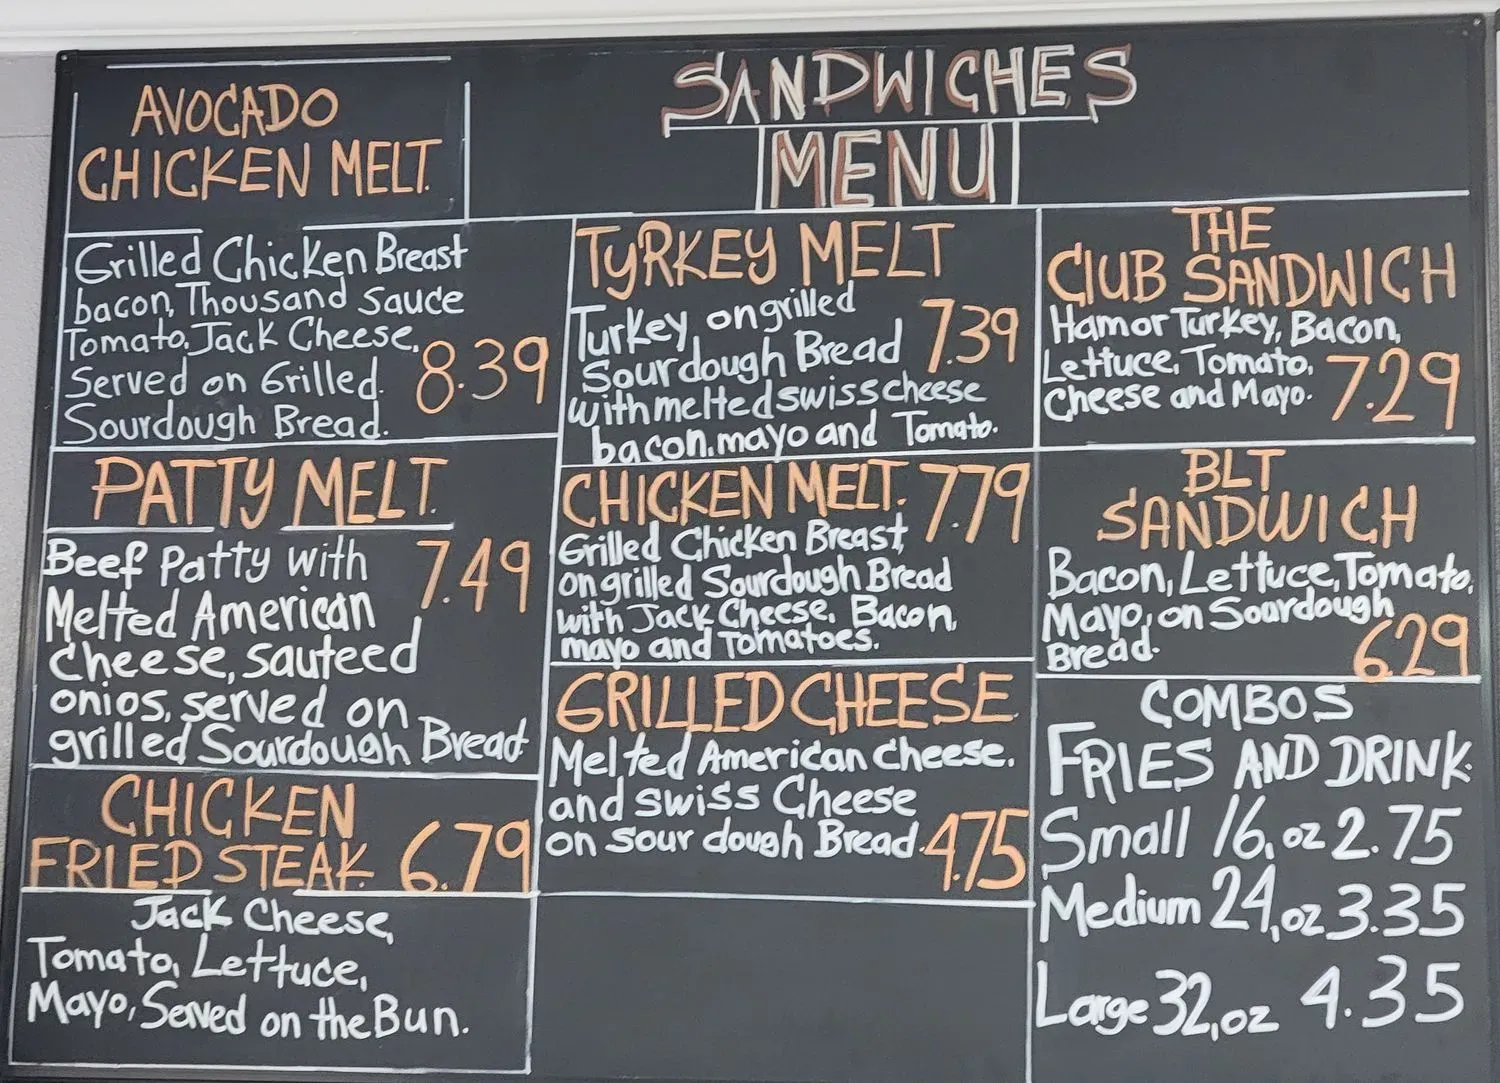 SANDWICHES
MENU
AVOCADO
CHICKEN MELT.
Grilled Chicken Breast
bacon, Thousand sauce
Tomato, Jack Cheese,
Served on Grilled.
Sourdough Bread.
8.39
PATTY MELT.
Beef Patty with
Melted American
Cheese, sauteed
onios, served on
grilled Sourdough Bread
7.49
CHICKEN
FRIED STEAK. 6.79
Jack Cheese,
Tomato, Lettuce,
Mayo, Served on the Bun.
TyRKEY MELT
Turkey, on grilled
Sourdough Bread
with melted swiss cheese
bacon, mayo and Tomato.
7.39
CHICKEN MELT. 7.79
Grilled Chicken Breast,
on grilled Sourdough Bread
with Jack Cheese, Bacon,
mayo and Tomatoes.
GRILLED CHEESE
Melted American cheese.
and swiss Cheese
on sour dough Bread. 4.75
THE
CLUB SANDWICH
Ham or Turkey, Bacon,
Lettuce, Tomato,
Cheese and Mayo. 7.29
BLT
SANDWICH
Bacon, Lettuce, Tomato,
Mayo, on Sourdough
Bread. 6.29
COMBOS
FRIES AND DRINK.
Small 16,oz 2.75
Medium 24,oz 3.35
Large 32,oz 4.35